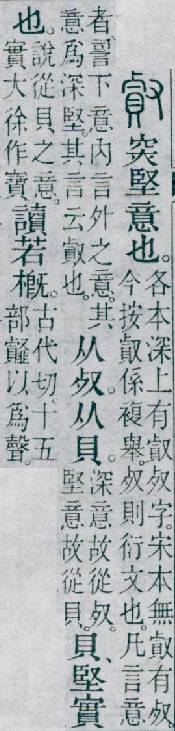 突堅意也。
各本深上有𣦻字。宋本無有𣦻
今按係複舉。𣦻則衍文也。凡言意
者下意內言外之意。其
意爲深堅。其言云也。
从𣦻从貝。
深意故從𣦻。
堅意故從貝。
貝、堅實
也。
說從貝之意。
實大徐作寶。
讀若槪。
古代切。十五
部以爲聲。